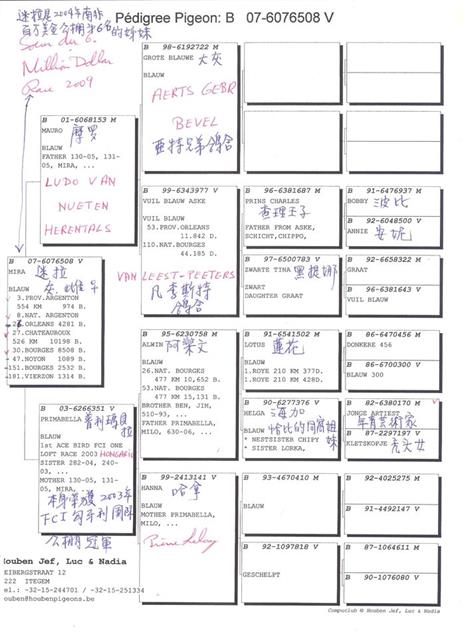 Pédigree Pigeon: B 07-6076508 V
迷拉是2009年南非
百万美金公棚第6名的姊妹
Soeur du 6.
Million Dollar
Race 2009
B 07-6076508 V
MIRA 迷拉
BLAUW
3.PROV.ARGENTON
554 KM 974 B.
8.NAT. ARGENTON
26.ORLEANS 4281 B.
27.CHATEAUROUX
526 KM 10198 B.
30.BOURGES 8508 B.
47.NOYON 1089 B.
151.BOURGES 2532 B.
181.VIERZON 1314 B.
B 01-6068153 M
MAURO 摩罗
BLAUW
FATHER 130-05, 131-
05, MIRA, ...
LUDO VAN
NUETEN
HERENTALS
B 03-6266351 V
PRIMABELLA 普利玛贝拉
BLAUW
1st ACE BIRD FCI ONE
LOFT RACE 2003 HONGARIJE
SISTER 282-04, 240-
03, ...
MOTHER 130-05, 131-
05, MIRA, ...
本身荣獲2003年
FCI匈牙利国际
公棚冠軍
B 98-6192722 M
GROTE BLAUWE 大灰
BLAUW
AERTS GEBR
BEVEL
亚特兄弟鸽舍
B 99-6343977 V
VUIL BLAUW ASKE
VUIL BLAUW
53.PROV.ORLEANS
11.842 D.
110.NAT.BOURGES
44.185 D.
VAN LEEST-PEETERS
凡季斯特
鸽舍
B 95-6230758 M
ALWIN 阿樂文
BLAUW
26.NAT. BOURGES
477 KM 10,652 B.
53.NAT. BOURGES
477 KM 15,131 B.
BROTHER BEN, JIM,
510-93, ...
FATHER PRIMABELLA,
MILO, 630-06, ...
B 99-2413141 V
HANNA 哈拿
BLAUW
MOTHER PRIMABELLA,
MILO, ...
B 96-6381687 M
PRINS CHARLES
查理王子
FATHER FROM ASKE,
SCHICHT,CHIPPO,
B 97-6500783 V
ZWARTE TINA 黑提娜
ZWART
DAUGHTER GRAAT
B 91-6541502 M
LOTUS 蓮花
BLAUW
1.ROYE 210 KM 377D.
1.ROYE 210 KM 428D.
B 90-6277376 V
HELGA 海加
BLAUW 恰比的同窩姐妹
* NESTSISTER CHIPY
* SISTER LORKA,
B 93-4670410 M
BLAUW
B 92-1097818 V
GESCHELPT
B 91-6476937 M
BOBBY 波比
B 92-6048500 V
ANNIE 安妮
B 92-6658322 M
GRAAT
B 96-6381643 V
VUIL BLAUW
B 86-6470456 M
DONKERE 456
B 86-6700300 V
BLAUW 300
B 82-6380170 M
JONGE ARTIEST
年青芸術家
B 87-2297197 V
KLETSKOPJE 禿头女
B 92-4025275 M
B 91-4492147 V
B 87-1064611 M
B 90-1076080 V
Houben Jef, Luc & Nadia
EIBERGSTRAAT 12
222 ITEGEM
el.: -32-15-244701 / -32-15-251334
ouben@houbenpigeons.be
Compuclub © Houben Jef, Luc & Nadia